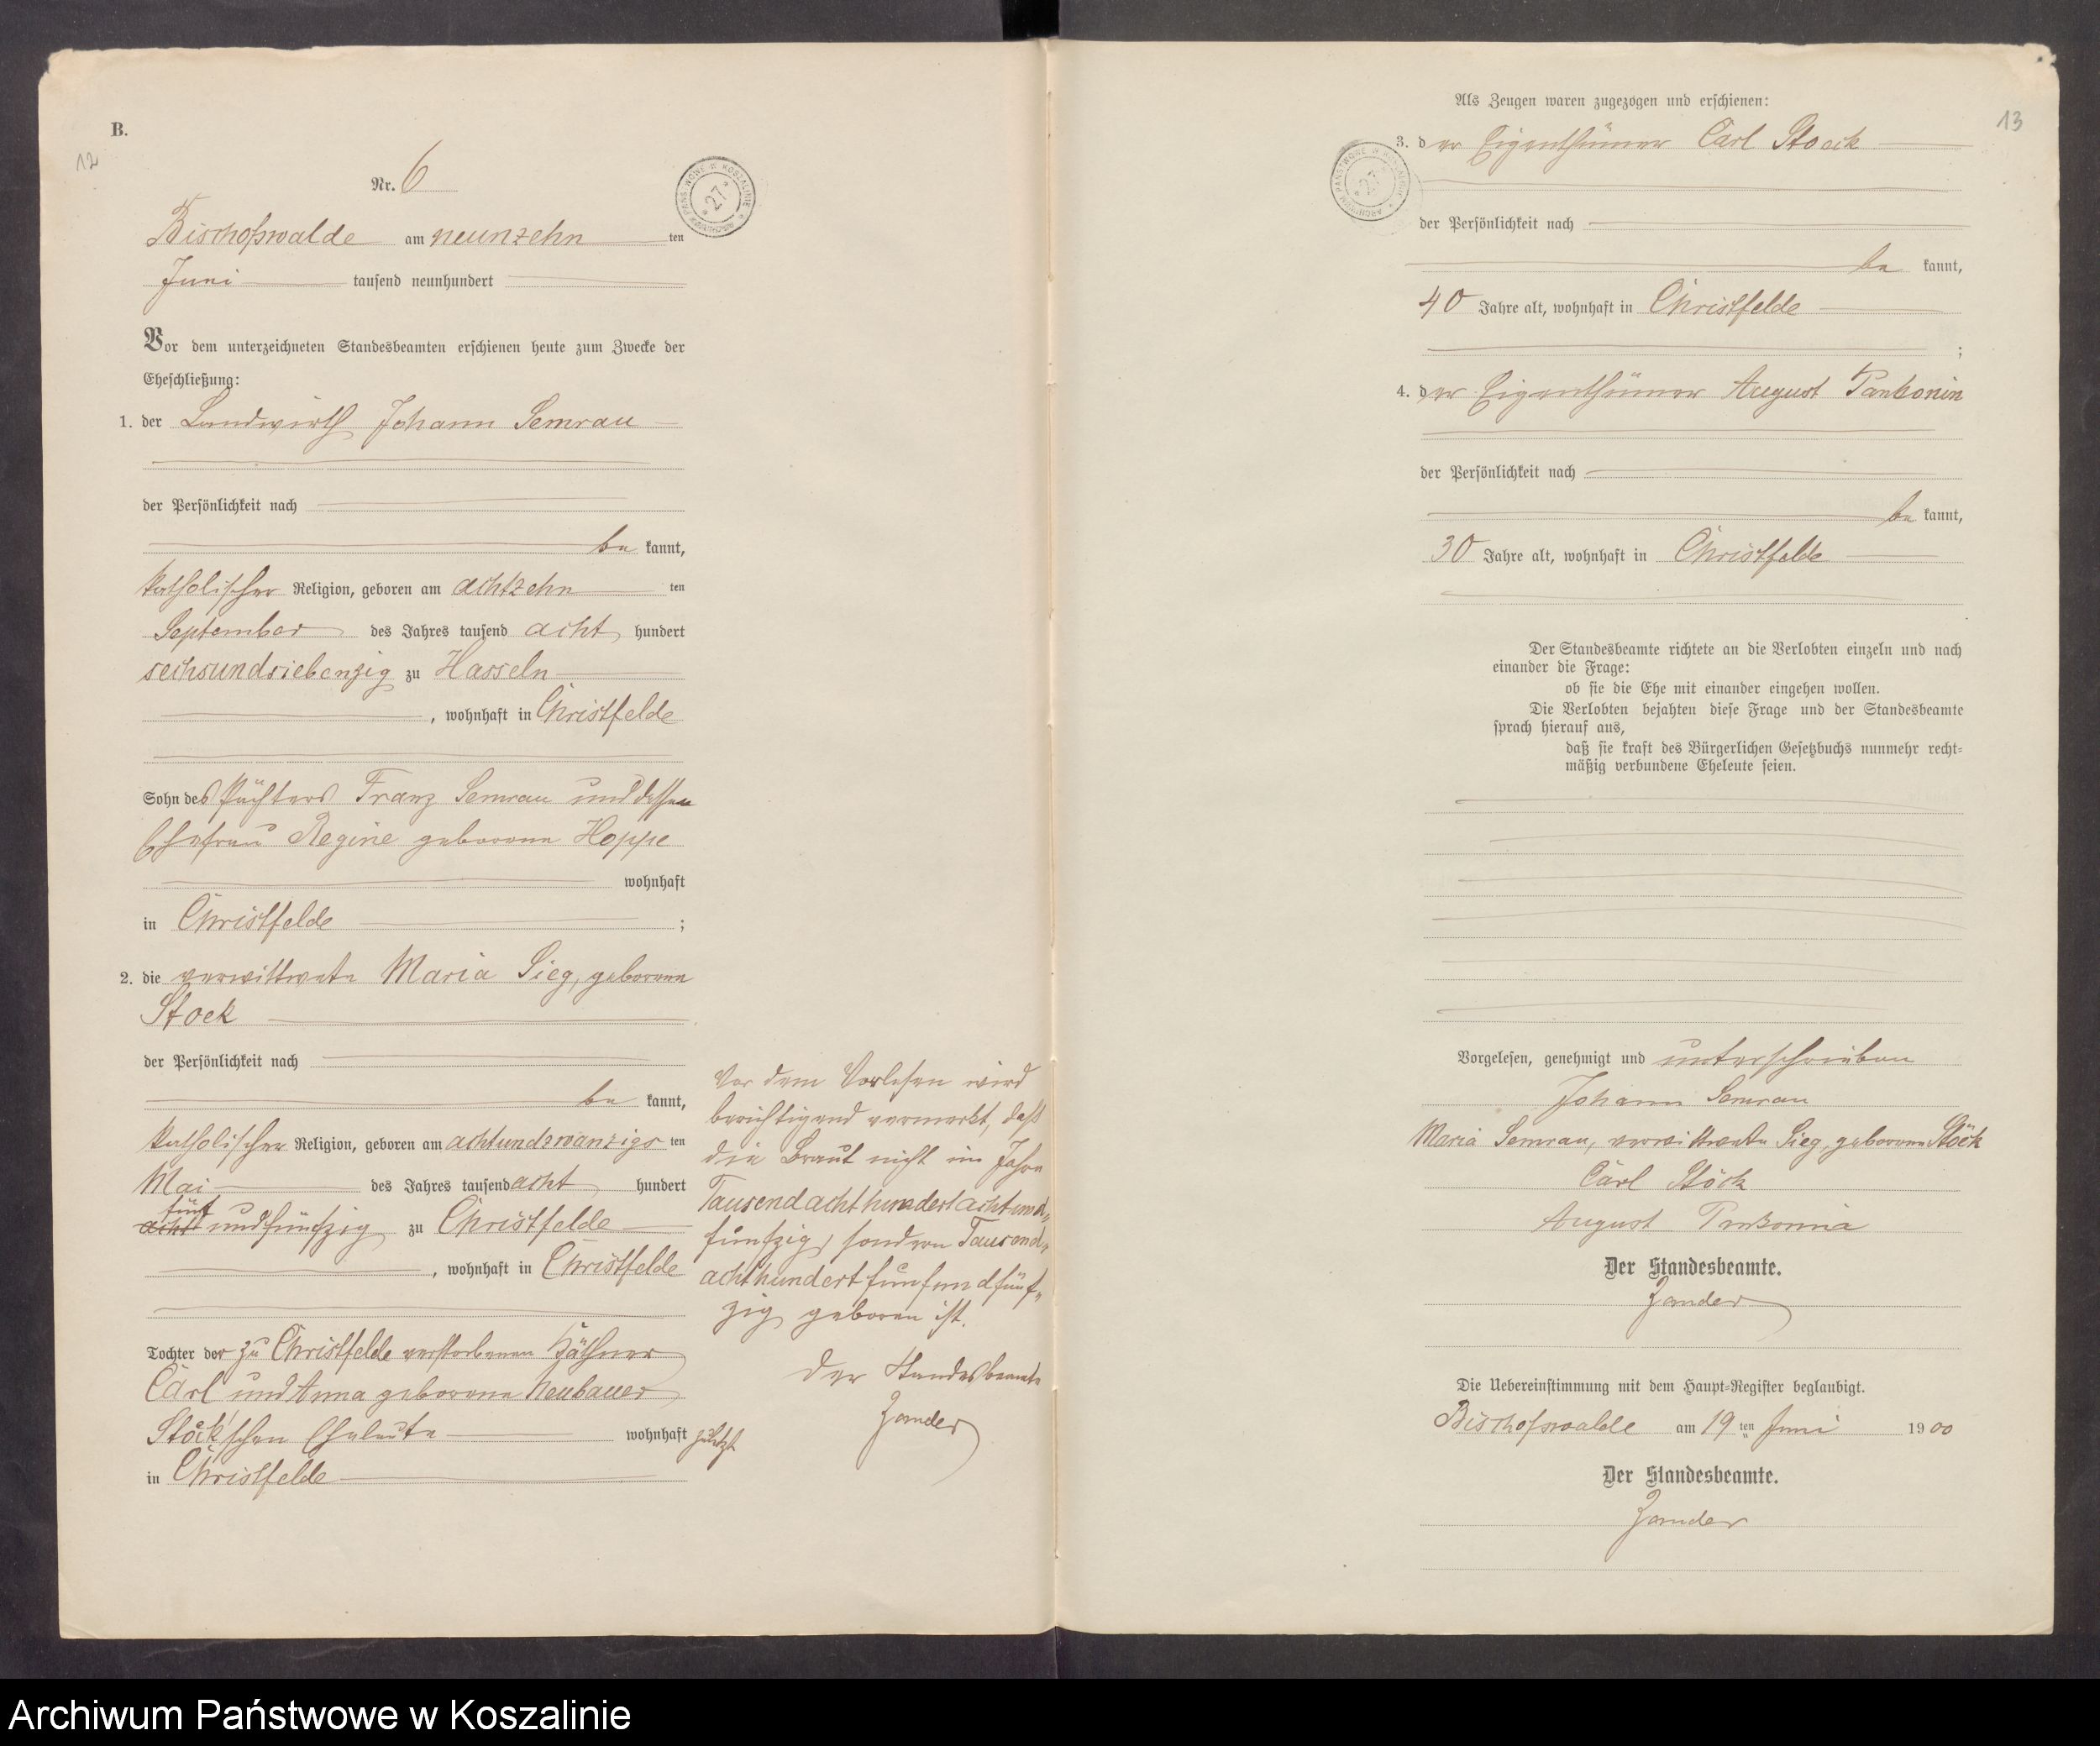 B.
12
Nr. 6
ARCHIWUM PAŃSTWOWE W KOSZALINIE * 27 *
Bischofswalde am neunzehn ten
Juni tausend neunhundert
Vor dem unterzeichneten Standesbeamten erschienen heute zum Zwecke der
Eheschließung:
1. der Landwirth Johann Semrau
der Persönlichkeit nach
be kannt,
katholischer Religion, geboren am achtzehn ten
September des Jahres tausend acht hundert
sechsundsiebenzig zu Hasseln
, wohnhaft in Christfelde
Sohn des Pächters Franz Semrau und dessen
Ehefrau Regine geborene Hoppe
wohnhaft
in Christfelde ;
2. die verwittwete Maria Sieg, geborene
Stoek
der Persönlichkeit nach
be kannt,
katholischer Religion, geboren am achtundzwanzigs ten
Mai des Jahres tausend acht hundert
fünf
acht undfünfzig zu Christfelde
, wohnhaft in Christfelde
Tochter der zu Christfelde verstorbenen Käthner
Carl und Anna geborene Neubauer
Stöck'schen Eheleute wohnhaft zuletzt
in Christfelde
Vor dem Vorlesen wird
berichtigend vermerkt, daß
die Braut nicht im Jahre
Tausendachthundertachtund„
fünfzig, sondern Tausend„
achthundertfünfundfünf„
zig geboren ist.
Der Standesbeamte
Zander
13
Als Zeugen waren zugezogen und erschienen:
ARCHIWUM PAŃSTWOWE W KOSZALINIE * 27 *
3. der Eigenthümer Carl Stoeck
der Persönlichkeit nach
be kannt,
40 Jahre alt, wohnhaft in Christfelde
;
4. der Eigenthümer August Pankonin
der Persönlichkeit nach
be kannt,
30 Jahre alt, wohnhaft in Christfelde
Der Standesbeamte richtete an die Verlobten einzeln und nach
einander die Frage:
ob sie die Ehe mit einander eingehen wollen.
Die Verlobten bejahten diese Frage und der Standesbeamte
sprach hierauf aus,
daß sie kraft des Bürgerlichen Gesetzbuchs nunmehr recht=
mäßig verbundene Eheleute seien.
Vorgelesen, genehmigt und unterschrieben
Johann Semrau
Maria Semrau, verwittwete Sieg, geborene Stöck
Carl Stöck
August
Der Standesbeamte.
Zander
Die Uebereinstimmung mit dem Haupt=Register beglaubigt.
Bischofswalde am 19 ten Juni 19 00
Der Standesbeamte.
Zander
Archiwum Państwowe w Koszalinie